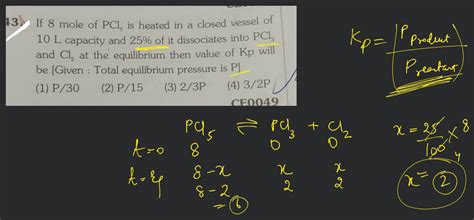 43. If 8 mole of PCl₅ is heated in a closed vessel of
10 L capacity and 25% of it dissociates into PCl₃
and Cl₂ at the equilibrium then value of Kp will
be [Given : Total equilibrium pressure is P]
(1) P/30 (2) P/15 (3) 2/3P (4) 3/2P
CF0049
Kp = | P Product / P reactant |
PCl₅ ⇌ PCl₃ + Cl₂
t=0 8 0 0
t=eq 8-x x x
8-2 2 2
=6
x = 25/100 × 8
4
x = 2